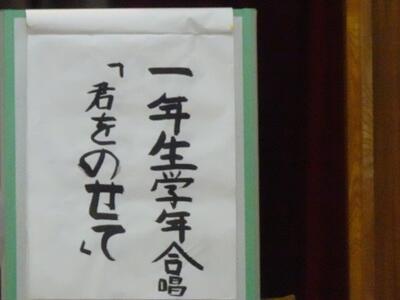 一年生学年合唱
「君をのせて」